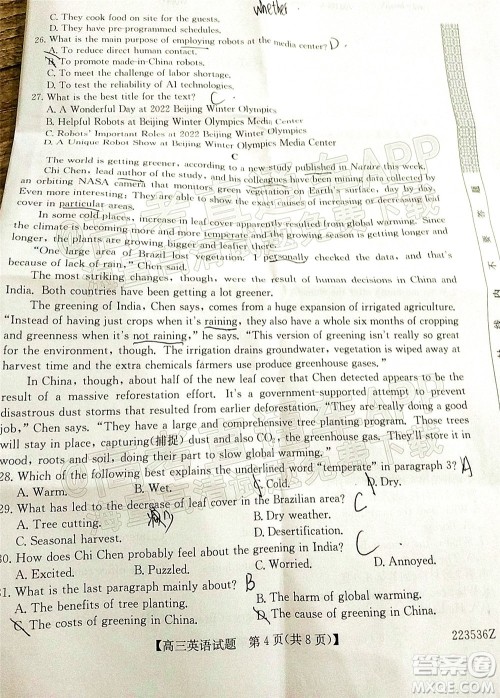 whether
C. They cook food on site for the guests.
D. They have pre-programmed schedules.
26. What is the main purpose of employing robots at the media center? D
A. To reduce direct human contact.
B. To promote made-in-China robots.
C. To meet the challenge of labor shortage.
D. To test the reliability of AI technologies.
27. What is the best title for the text? C
A. A Wonderful Day at 2022 Beijing Winter Olympics
B. Helpful Robots at Beijing Winter Olympics Media Center
C. Robots' Important Roles at 2022 Beijing Winter Olympics
D. A Unique Robot Show at Beijing Winter Olympics
C
The world is getting greener, according to a new study published in Nature this week.
Chi Chen, lead author of the study, and his colleagues have been mining data collected by
an orbiting NASA camera that monitors green vegetation on Earth's surface, day by day.
Even more interesting, they've been able to show that the world has seen increases in leaf
cover in particular areas.
In some cold places, increase in leaf cover may be attributable to global warming. Since
the climate is becoming more and more temperate and the growing season is getting longer and
longer, the plants are growing bigger and healthier.
"One large area of Brazil lost vegetation. I personally checked the data, and it is
because of little rain," Chen said.
The most striking changes, though, were the result of human decisions in China and
India. Both countries have been getting a lot greener.
The greening of India, Chen says, comes from a huge expansion of irrigated agriculture.
"Instead of having just crops when it's raining, they also have a whole six months of cropping
and greenness when it's not raining," he says. "This version of greening isn't really so great
for the environment, though. The irrigation drains groundwater, vegetation is wiped away at
harvest time and the extra chemicals farmers use produce greenhouse gases."
In China, though, about half of the new leaf cover that Chen detected appears to be the
result of a massive reforestation effort. It's part of a government attempt to prevent
disastrous dust storms that resulted from earlier deforestation. "They are really doing a good
job," Chen says. "They really have a comprehensive tree planting program. Those trees
will stay in place, capturing(捕捉) dust and also CO₂, the greenhouse gas. They store carbon in
wood, roots, and soil, doing their part to slow down global warming."
28. Which of the following best explains the underlined word "temperate" in paragraph 3? A
A. Warm. B. Wet. C. Cold. D. Dry.
29. What has led to the decrease of leaf cover in the Brazilian area? C
A. Tree cutting. 减少 B. Dry weather.
C. Seasonal harvest. D. Desertification.
30. How does Chi Chen probably feel about the greening in India? C
A. Excited. B. Puzzled. C. Worried. D. Annoyed.
31. What is the last paragraph mainly about? B
A. The benefits of tree planting. B. The history of global warming.
C. The costs of greening in China. D. The cause of greening in China.
【高三英语试题 第4页(共8页)】
223536Z
MXQE.COM